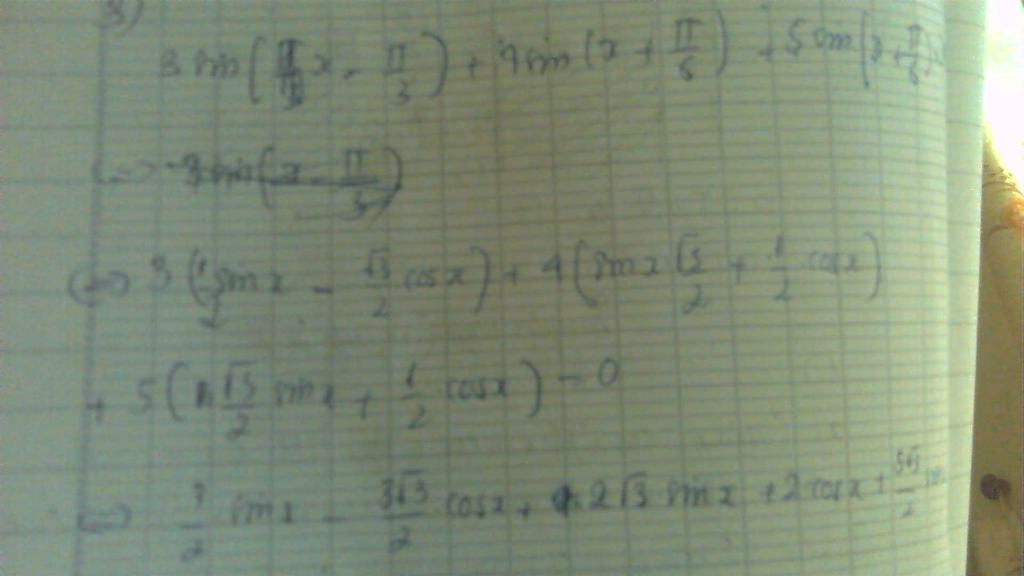 3)
3 sin(x - π/3) + 4 sin(x + π/6) + 5 sin(x + π/6)
<=> 3 sin(x - π/3)
<=> 3(1/2 sin x - √3/2 cos x) + 4(sin x √3/2 + 1/2 cos x)
+ 5(√3/2 sin x + 1/2 cos x) = 0
<=> 3/2 sin x - 3√3/2 cos x + 2√3 sin x + 2 cos x + 5√3/2